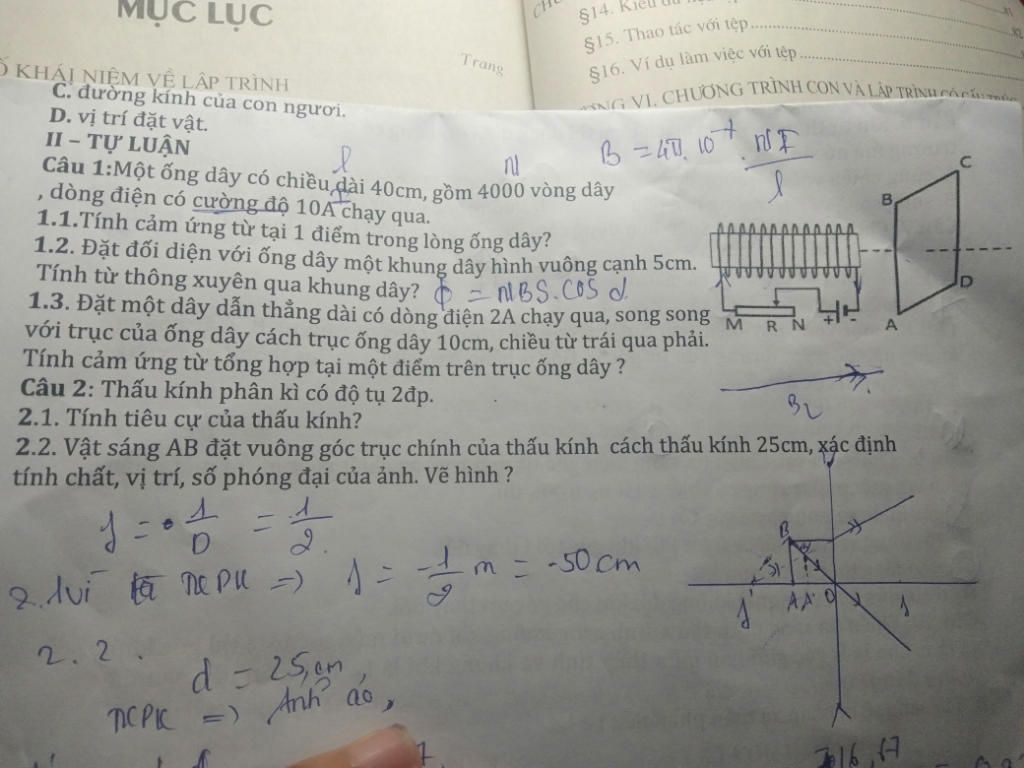 MỤC LỤC
Trang
Ố KHÁI NIỆM VỀ LẬP TRÌNH
§14.
§15. Thao tác với tệp
§16. Ví dụ làm việc với tệp
VI. CHƯƠNG TRÌNH CON VÀ LẬP TRÌNH CÓ CẤU TRÚC
C. đường kính của con ngươi.
D. vị trí đặt vật.
II – TỰ LUẬN
l N B = 4π.10⁻⁷. NI / l
Câu 1:Một ống dây có chiều dài 40cm, gồm 4000 vòng dây
I
, dòng điện có cường độ 10A chạy qua.
1.1.Tính cảm ứng từ tại 1 điểm trong lòng ống dây?
1.2. Đặt đối diện với ống dây một khung dây hình vuông cạnh 5cm.
Tính từ thông xuyên qua khung dây? Φ = NBS.cos α
1.3. Đặt một dây dẫn thẳng dài có dòng điện 2A chạy qua, song song
với trục của ống dây cách trục ống dây 10cm, chiều từ trái qua phải.
Tính cảm ứng từ tổng hợp tại một điểm trên trục ống dây ?
B C
D
A
M R N + -
B₂
Câu 2: Thấu kính phân kì có độ tụ 2đp.
2.1. Tính tiêu cự của thấu kính?
2.2. Vật sáng AB đặt vuông góc trục chính của thấu kính cách thấu kính 25cm, xác định
tính chất, vị trí, số phóng đại của ảnh. Vẽ hình ?
f = 1/D = 1/2
2.1 vì TKPK => f = -1/2 m = -50 cm
2.2.
d = 25 cm
TKPK => Ảnh ảo,
B
A A' O
16,67